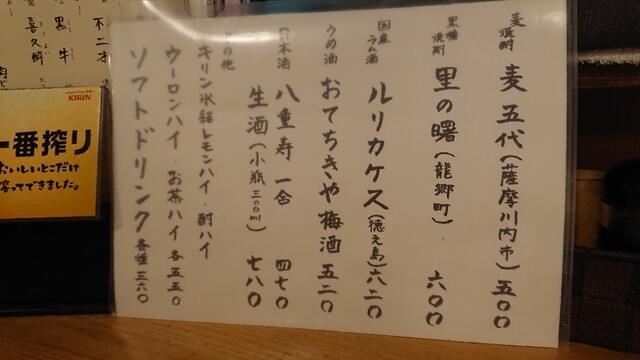 麦焼酎 麦 五代(薩摩川内市) 五〇〇
黒糖焼酎 里の曙(龍郷町) 六〇〇
国産ラム酒 ルリカケス(徳之島) 六二〇
うめ酒 おてちきや梅酒 五二〇
日本酒 八重寿 一合 四七〇
生酒(小瓶三〇〇ml) 七八〇
その他
キリン氷結レモンハイ・酎ハイ
ウーロンハイ・お茶ハイ 各五五〇
ソフトドリンク 各種 三六〇
不二才
黒牛
喜久酔
KIRIN
一番搾り
おいしいとこだけ
搾ってできました。